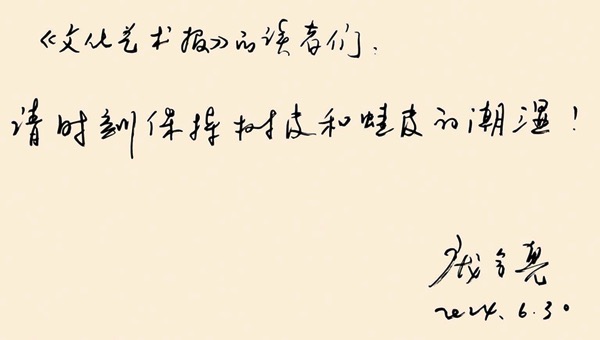 《文化艺术报》的读者们：
请时刻保持树皮和蛙皮的潮湿！
庞余亮
2024.6.30